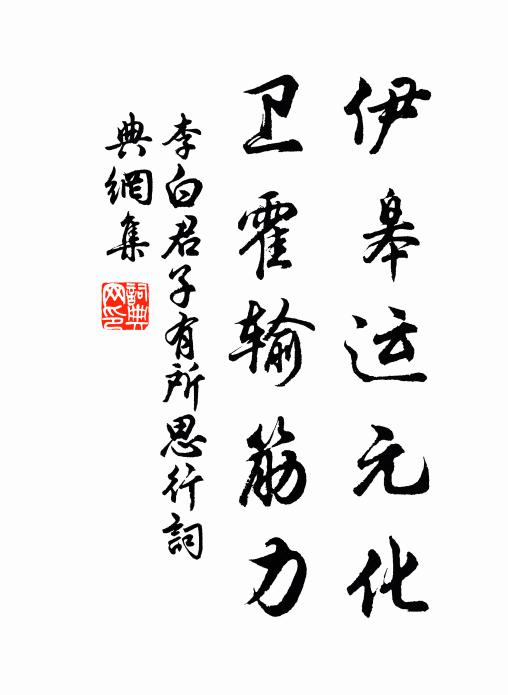 伊皋运元化
卫霍输筋力
李白君子有所思行詞
典網集
詞典
网印